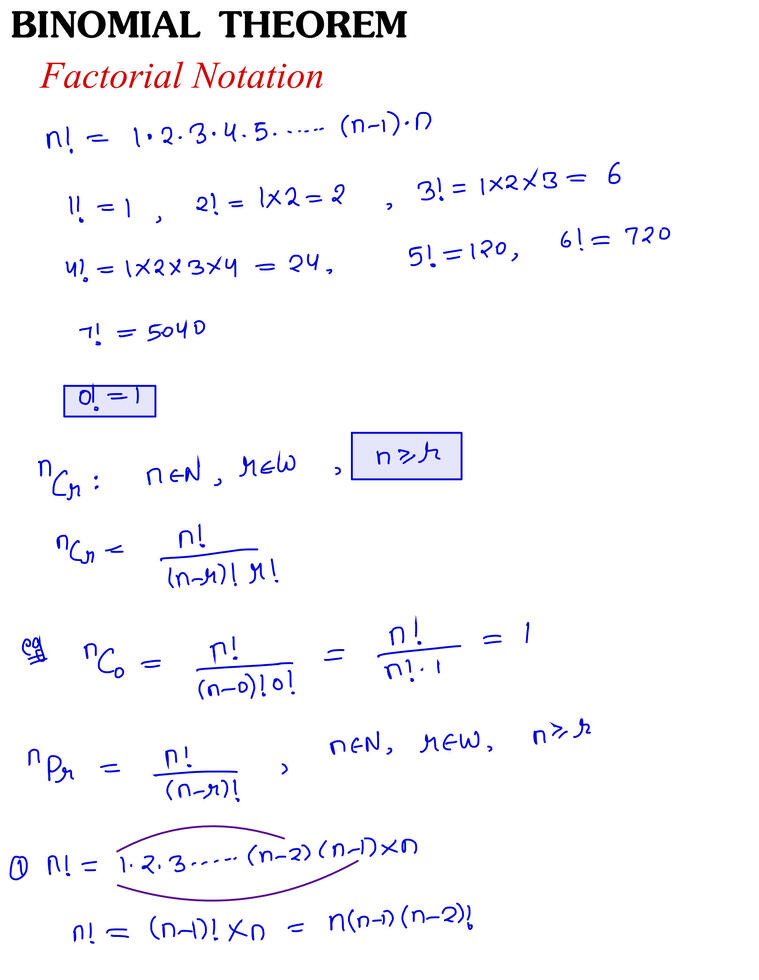 BINOMIAL THEOREM
Factorial Notation
n! = 1·2·3·4·5·..... (n-1)·n
1! = 1 , 2! = 1×2 = 2 , 3! = 1×2×3 = 6
4! = 1×2×3×4 = 24, 5! = 120, 6! = 720
7! = 5040
0! = 1
ⁿCᵣ : n∈N, r∈W , n ⩾ r
ⁿCᵣ = n! / (n-r)! r!
eg ⁿC₀ = n! / (n-0)! 0! = n! / n!·1 = 1
ⁿPᵣ = n! / (n-r)! , n∈N, r∈W, n ⩾ r
① n! = 1·2·3·....· (n-2) (n-1)×n
n! = (n-1)! × n = n(n-1)(n-2)!